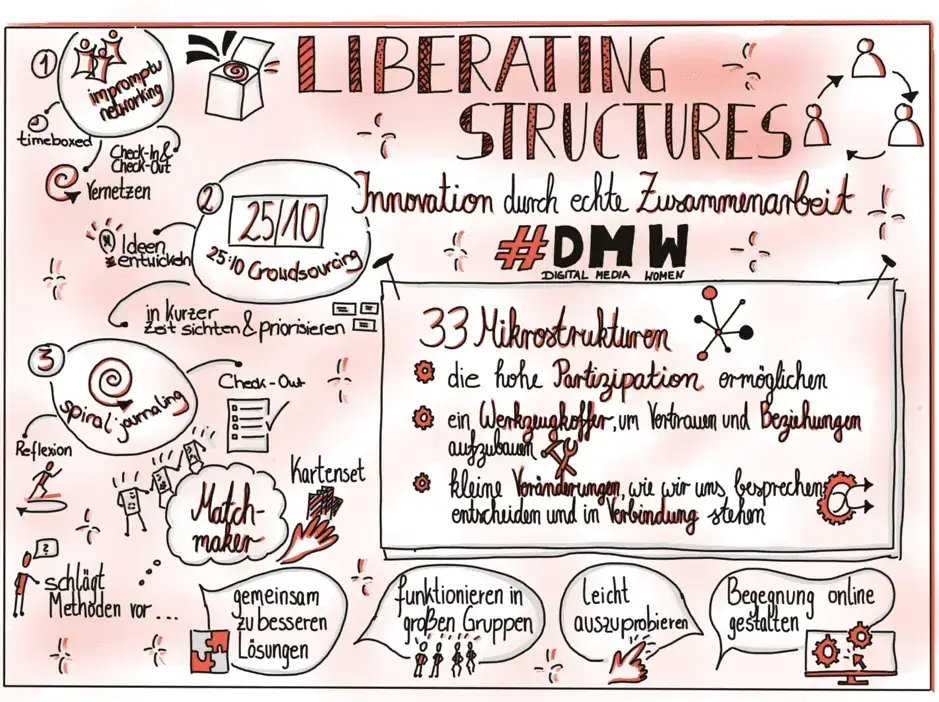 LIBERATING
STRUCTURES
Innovation durch echte Zusammenarbeit
#DMW
DIGITAL MEDIA WOMEN
1
impromptu
networking
timeboxed
Check-In &
Check-Out
Vernetzen
2
25/10
25:10 Crowdsourcing
Ideen
entwickeln
in kurzer
Zeit sichten & priorisieren
3
spiral journaling
Check-Out
Reflexion
Match-
maker
Kartenset
?
schlägt
Methoden vor ...
33 Mikrostrukturen
die hohe Partizipation ermöglichen
ein Werkzeugkoffer, um Vertrauen und Beziehungen
aufzubauen
kleine Veränderungen, wie wir uns besprechen,
entscheiden und in Verbindung stehen
gemeinsam
zu besseren
Lösungen
funktionieren in
großen Gruppen
Leicht
auszuprobieren
Begegnung online
gestalten